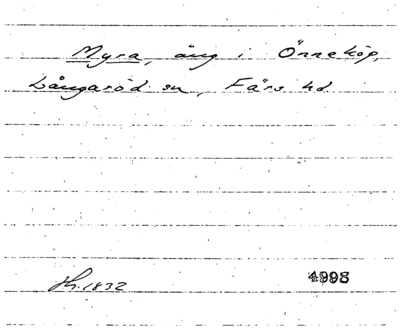 Myra, äng i Önneköp,
Långaröd sn, Färs hd.
1832
4993